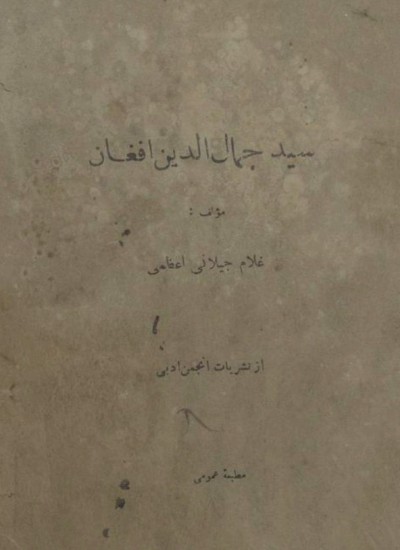 سید جمال الدین افغان
مؤلف :
غلام جیلانی اعظمی
از نشریات انجمن ادبی
مطبعهٔ عمومی